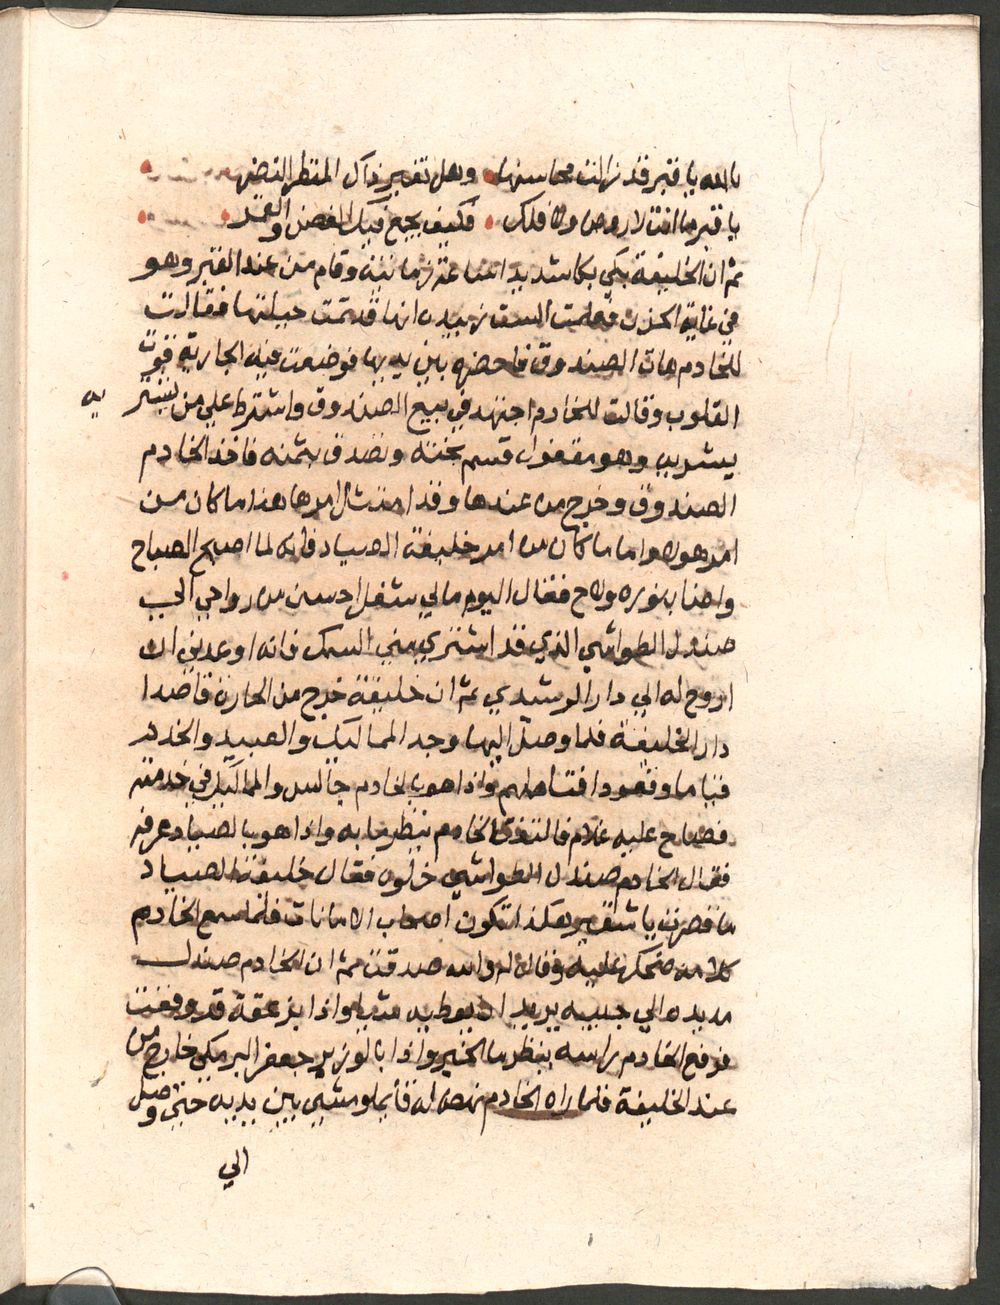 بالله يا قبر قد زالت محاسنها وهل تغير ذاك المنظر النضر
يا قبر ما انت لا روض ولا فلك فكيف يجمع فيك الغصن والقمر
ثم ان الخليفة بكي بكا شديدا ساعة زمانية وقام من عند القبر وهو
في غاية الحزن فعلمت الست زبيده انها قد تمت حيلتها فقالت
للخادم هات الصندوق فاحضره بين يديها فوضعت فيه الجارية قوت
القلوب وقالت للخادم اجتهد في بيع الصندوق واشترط علي من
يشتريه وهو مقفول ونصدق بثمنه فاخذ الخادم
الصندوق وخرج من عندها وقد امتثل امرها هذا ما كان من
امر هولا واما ما كان من امر خليفة الصياد فانه لما اصبح الصباح
واضا بنوره ولاح فقال اليوم مالي شغل احسن من رواحي الي
صندل الطواشي الذي قد اشتري مني السمك فانه اوعدني ان
اروح له الي دار الرشيد ثم ان خليفة خرج من الحارة قاصدا
دار الخليفة فلما وصل اليها وجد المماليك والعبيد والخدم
قياما وقعودا فتاملهم واذا هو بالخادم جالس والمماليك في خدمته
فصاح عليه غلام فالتفت الخادم ينظر ما به واذا هو بالصياد عرفه
فقال الخادم صندل الطواشي فقال خليفة الصياد
ما قصرت يا شقير هكذا تكون اصحاب الامانات فلما سمع الخادم
كلامه ضحك عليه وقال له والله صدقت ثم ان الخادم صندل
مد يده الي جيبه يريد ان يعطيه واذا بزعقة قد وقعت
فرفع الخادم راسه ينظر ما الخبر واذا بالوزير جعفر البرمكي خارج من
عند الخليفة فلما راه الخادم نهض له قائما ومشي بين يديه حتي وصل
الي